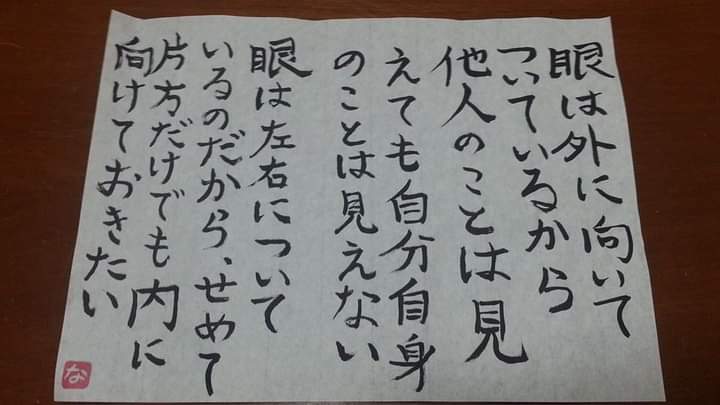 眼は外に向いて
ついているから
他人のことは見
えても自分自身
のことは見えない
眼は左右について
いるのだから、せめて
片方だけでも内に
向けておきたい
な